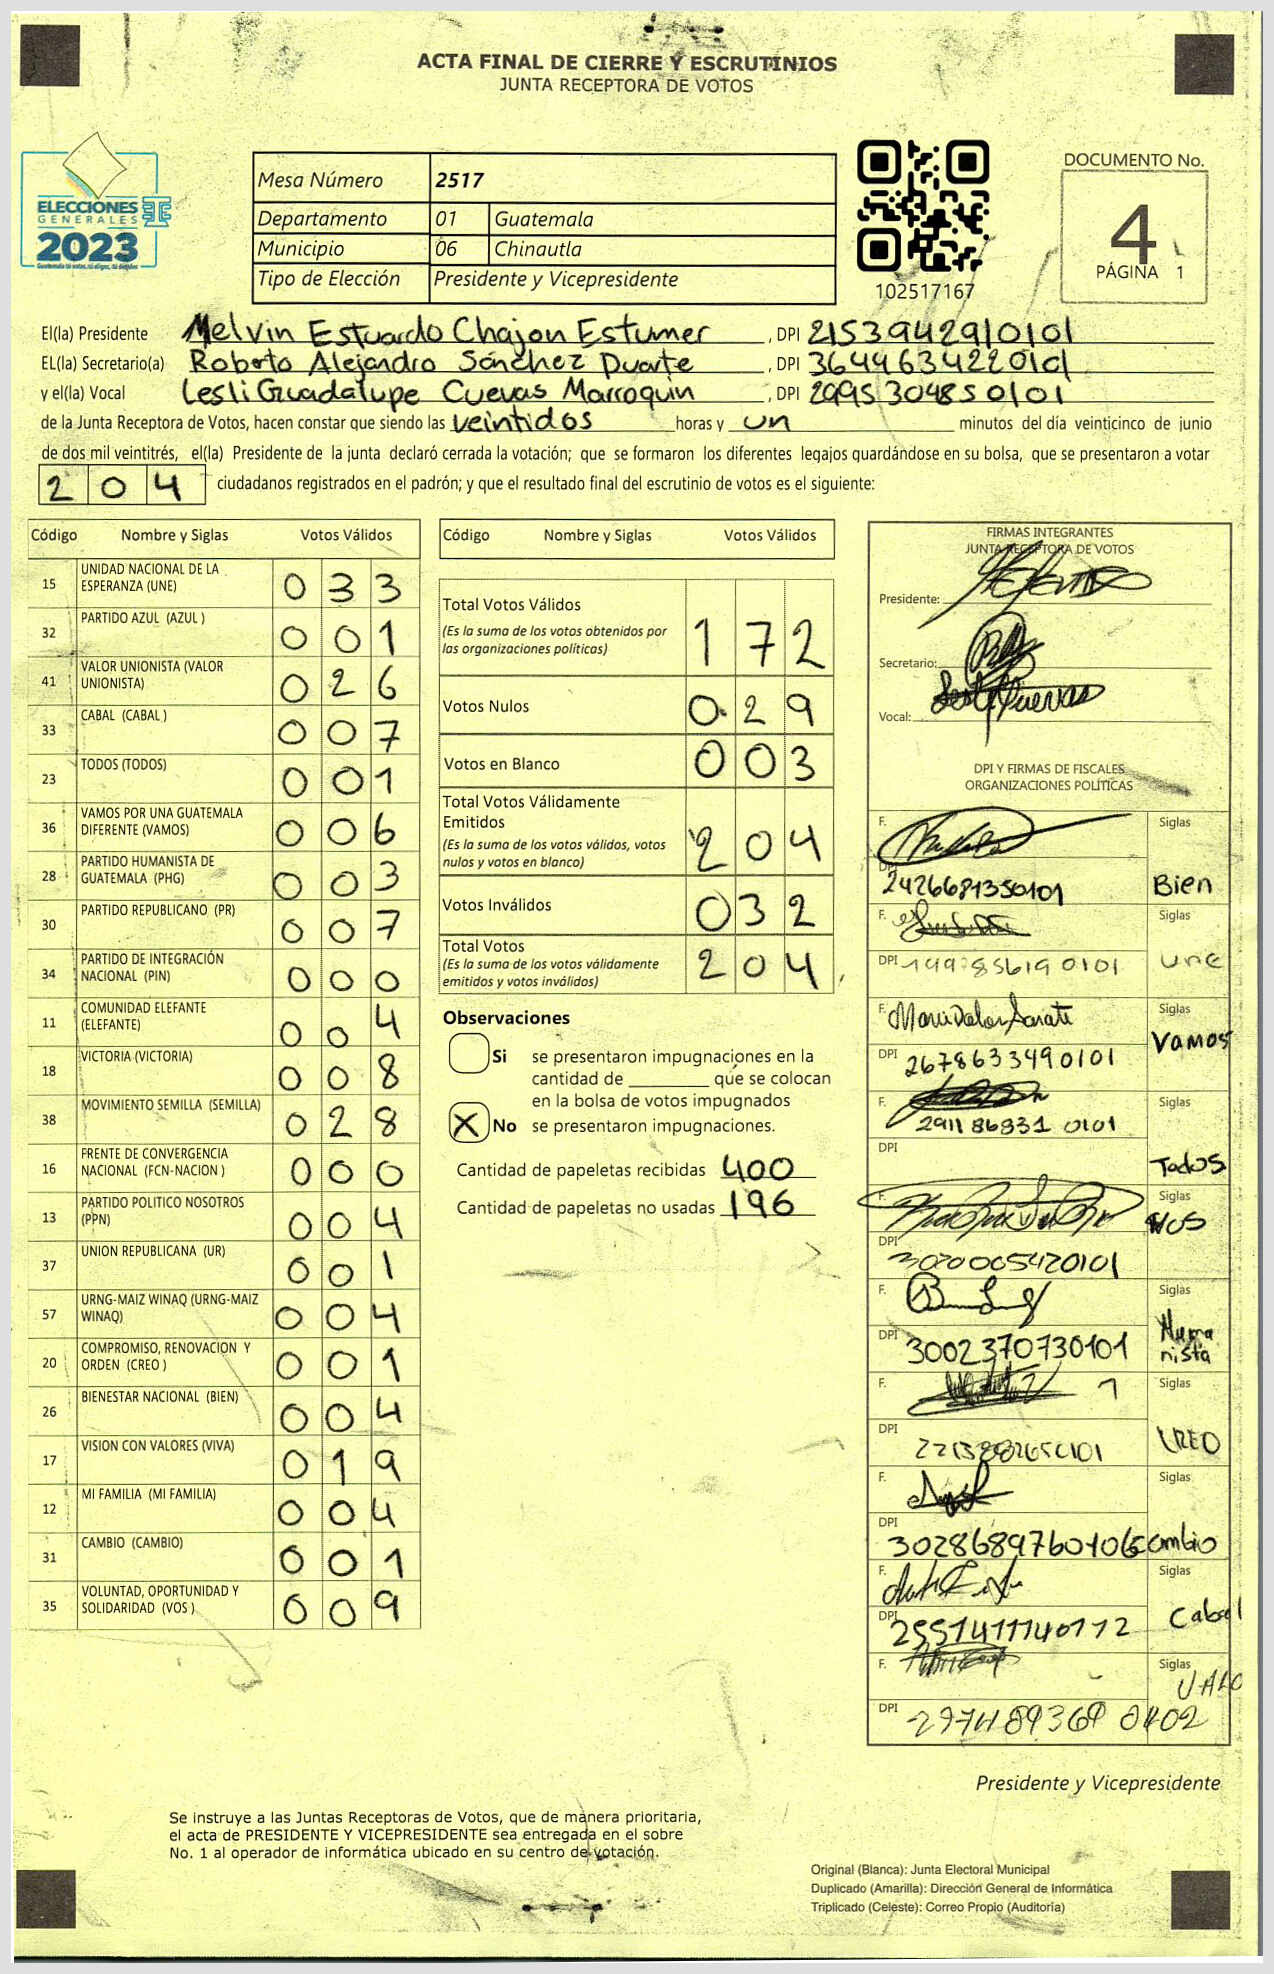 ACTA FINAL DE CIERRE Y ESCRUTINIOS
JUNTA RECEPTORA DE VOTOS
ELECCIONES
GENERALES
2023
Mesa Número 2517
Departamento 01 Guatemala
Municipio 06 Chinautla
Tipo de Elección Presidente y Vicepresidente
102517167
DOCUMENTO No.
4
PÁGINA 1
El(la) Presidente Melvin Estuardo Chajon Estumer, DPI 2153942910101
EL(la) Secretario(a) Roberto Alejandro Sánchez Duarte, DPI 3644634220101
y el(la) Vocal Lesli Guadalupe Cuevas Marroquin, DPI 2995304850101
de la Junta Receptora de Votos, hacen constar que siendo las veintidos horas y un minutos del día veinticinco de junio
de dos mil veintitrés, el(la) Presidente de la junta declaró cerrada la votación; que se formaron los diferentes legajos guardándose en su bolsa, que se presentaron a votar
204 ciudadanos registrados en el padrón; y que el resultado final del escrutinio de votos es el siguiente:
Código Nombre y Siglas Votos Válidos
15 UNIDAD NACIONAL DE LA ESPERANZA (UNE) 033
32 PARTIDO AZUL (AZUL ) 001
41 VALOR UNIONISTA (VALOR UNIONISTA) 026
33 CABAL (CABAL ) 007
23 TODOS (TODOS) 001
36 VAMOS POR UNA GUATEMALA DIFERENTE (VAMOS) 006
28 PARTIDO HUMANISTA DE GUATEMALA (PHG) 003
30 PARTIDO REPUBLICANO (PR) 007
34 PARTIDO DE INTEGRACIÓN NACIONAL (PIN) 000
11 COMUNIDAD ELEFANTE (ELEFANTE) 004
18 VICTORIA (VICTORIA) 008
38 MOVIMIENTO SEMILLA (SEMILLA) 028
16 FRENTE DE CONVERGENCIA NACIONAL (FCN-NACION ) 000
13 PARTIDO POLITICO NOSOTROS (PPN) 004
37 UNION REPUBLICANA (UR) 001
57 URNG-MAIZ WINAQ (URNG-MAIZ WINAQ) 004
20 COMPROMISO, RENOVACION Y ORDEN (CREO ) 001
26 BIENESTAR NACIONAL (BIEN) 004
17 VISION CON VALORES (VIVA) 019
12 MI FAMILIA (MI FAMILIA) 004
31 CAMBIO (CAMBIO) 001
35 VOLUNTAD, OPORTUNIDAD Y SOLIDARIDAD (VOS ) 009
Código Nombre y Siglas Votos Válidos
Total Votos Válidos
(Es la suma de los votos obtenidos por las organizaciones políticas) 172
Votos Nulos 029
Votos en Blanco 003
Total Votos Válidamente Emitidos
(Es la suma de los votos válidos, votos nulos y votos en blanco) 204
Votos Inválidos 032
Total Votos
(Es la suma de los votos válidamente emitidos y votos inválidos) 204
Observaciones
Si se presentaron impugnaciones en la
cantidad de ________ que se colocan
en la bolsa de votos impugnados
X No se presentaron impugnaciones.
Cantidad de papeletas recibidas 400
Cantidad de papeletas no usadas 196
FIRMAS INTEGRANTES
JUNTA RECEPTORA DE VOTOS
Presidente:
Secretario:
Vocal:
DPI Y FIRMAS DE FISCALES
ORGANIZACIONES POLÍTICAS
F. Siglas
DPI 2426681350101 Bien
F. Siglas
DPI Une
F. Siglas
DPI 2678633490101 Vamos
F. Siglas
2911868310101
DPI Todos
F. Siglas
VOS
DPI 3020005420101
F. Siglas
DPI 3002370730101 Humanista
F. Siglas
DPI CREO
F. Siglas
DPI 3028689760106 Cambio
F. Siglas
DPI 2551411140112 Cabal
F. Siglas
VALO
DPI
Presidente y Vicepresidente
Se instruye a las Juntas Receptoras de Votos, que de manera prioritaria,
el acta de PRESIDENTE Y VICEPRESIDENTE sea entregada en el sobre
No. 1 al operador de informática ubicado en su centro de votación.
Original (Blanca): Junta Electoral Municipal
Duplicado (Amarilla): Dirección General de Informática
Triplicado (Celeste): Correo Propio (Auditoría)